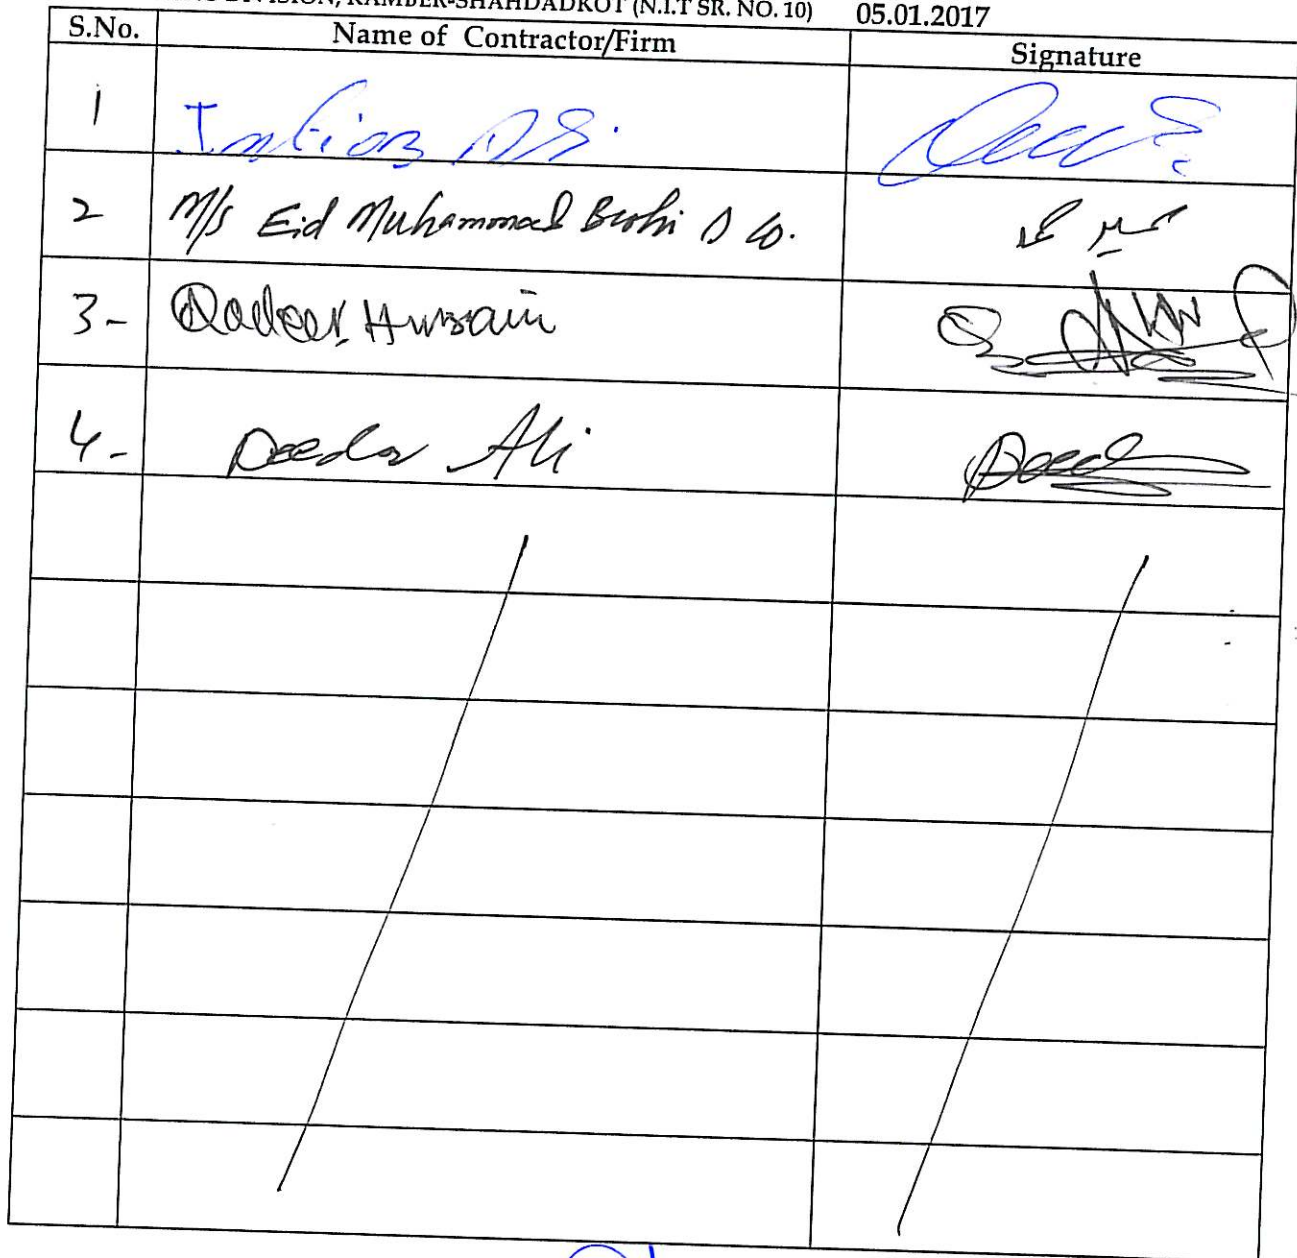 DIVISION, KAMBER-SHAHDADKOT (N.I.T SR. NO. 10) 05.01.2017
S.No. Name of Contractor/Firm Signature
1 Imtiaz Ali
2 M/s Eid Muhammad Brohi & Co.
3- Qadeer Hussain
4- Deedar Ali